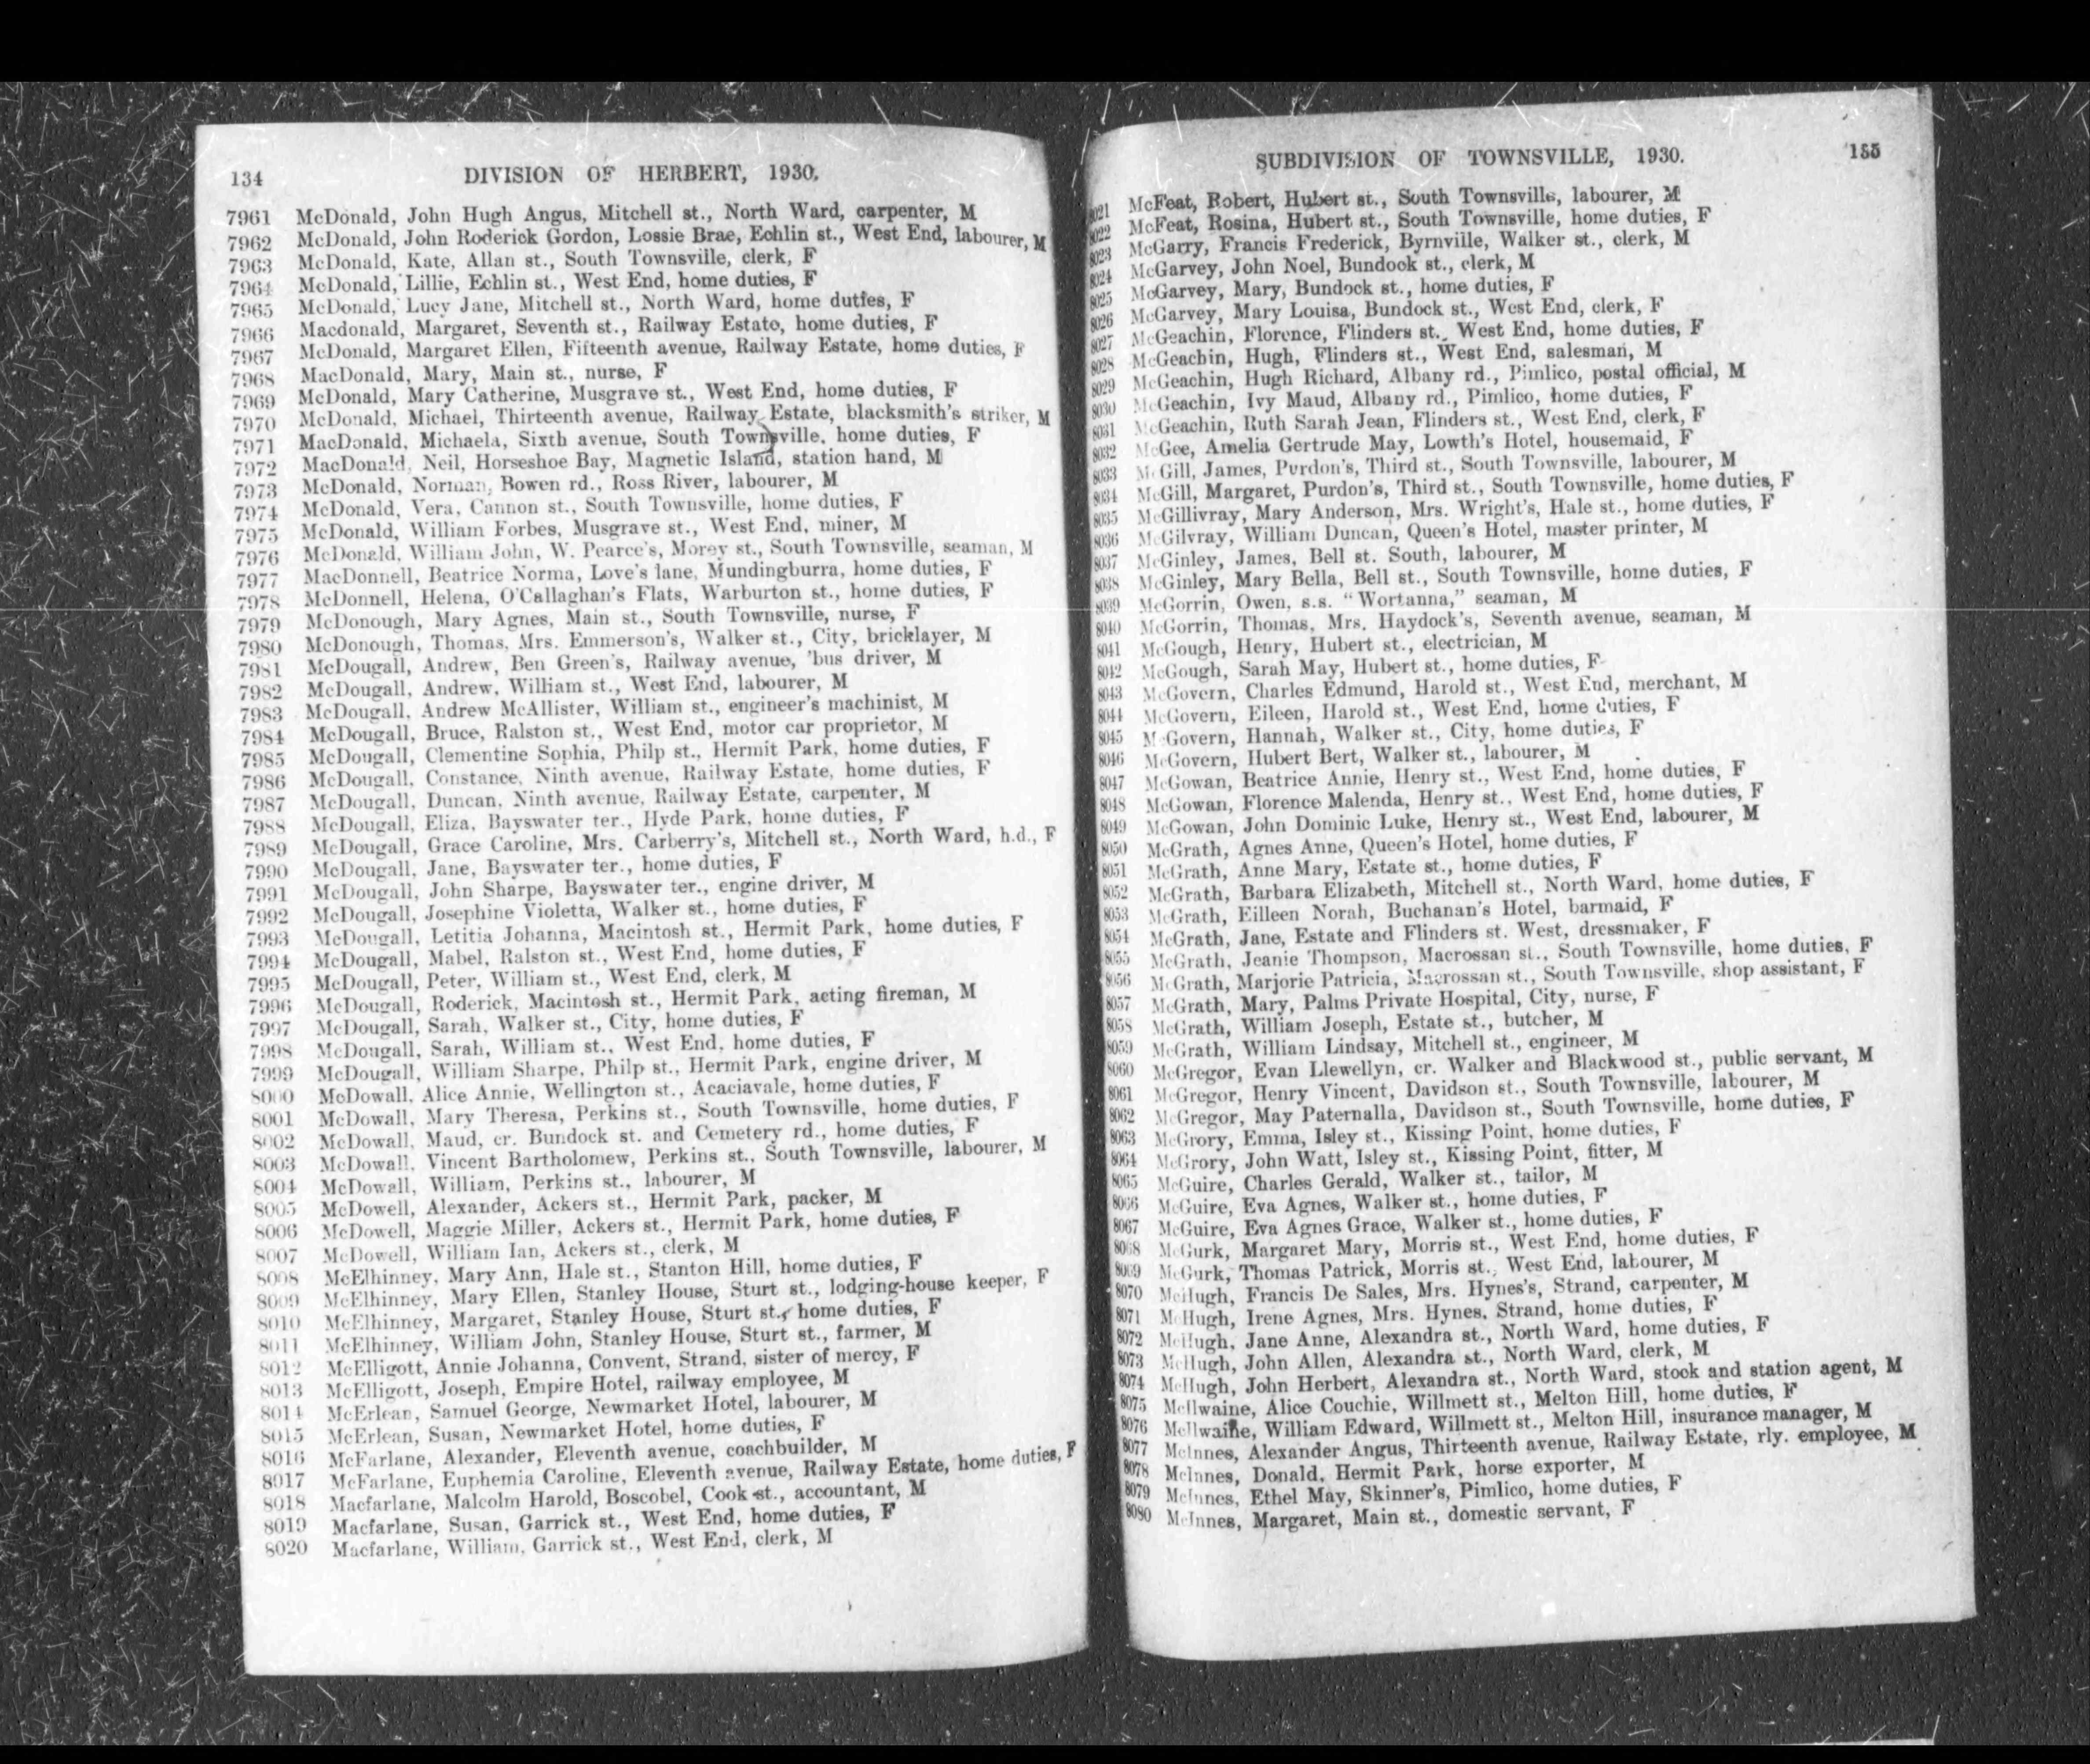 134 DIVISION OF HERBERT, 1930.
7961 McDonald, John Hugh Angus, Mitchell st., North Ward, carpenter, M
7962 McDonald, John Roderick Gordon, Lossie Brae, Echlin st., West End, labourer, M
7963 McDonald, Kate, Allan st., South Townsville, clerk, F
7964 McDonald, Lillie, Echlin st., West End, home duties, F
7965 McDonald, Lucy Jane, Mitchell st., North Ward, home duties, F
7966 Macdonald, Margaret, Seventh st., Railway Estate, home duties, F
7967 McDonald, Margaret Ellen, Fifteenth avenue, Railway Estate, home duties, F
7968 MacDonald, Mary, Main st., nurse, F
7969 McDonald, Mary Catherine, Musgrave st., West End, home duties, F
7970 McDonald, Michael, Thirteenth avenue, Railway Estate, blacksmith's striker, M
7971 MacDonald, Michaela, Sixth avenue, South Townsville, home duties, F
7972 MacDonald, Neil, Horseshoe Bay, Magnetic Island, station hand, M
7973 McDonald, Norman, Bowen rd., Ross River, labourer, M
7974 McDonald, Vera, Cannon st., South Townsville, home duties, F
7975 McDonald, William Forbes, Musgrave st., West End, miner, M
7976 McDonald, William John, W. Pearce's, Morey st., South Townsville, seaman, M
7977 MacDonnell, Beatrice Norma, Love's lane, Mundingburra, home duties, F
7978 McDonnell, Helena, O'Callaghan's Flats, Warburton st., home duties, F
7979 McDonough, Mary Agnes, Main st., South Townsville, nurse, F
7980 McDonough, Thomas, Mrs. Emmerson's, Walker st., City, bricklayer, M
7981 McDougall, Andrew, Ben Green's, Railway avenue, 'bus driver, M
7982 McDougall, Andrew, William st., West End, labourer, M
7983 McDougall, Andrew McAllister, William st., engineer's machinist, M
7984 McDougall, Bruce, Ralston st., West End, motor car proprietor, M
7985 McDougall, Clementine Sophia, Philp st., Hermit Park, home duties, F
7986 McDougall, Constance, Ninth avenue, Railway Estate, home duties, F
7987 McDougall, Duncan, Ninth avenue, Railway Estate, carpenter, M
7988 McDougall, Eliza, Bayswater ter., Hyde Park, home duties, F
7989 McDougall, Grace Caroline, Mrs. Carberry's, Mitchell st., North Ward, h.d., F
7990 McDougall, Jane, Bayswater ter., home duties, F
7991 McDougall, John Sharpe, Bayswater ter., engine driver, M
7992 McDougall, Josephine Violetta, Walker st., home duties, F
7993 McDougall, Letitia Johanna, Macintosh st., Hermit Park, home duties, F
7994 McDougall, Mabel, Ralston st., West End, home duties, F
7995 McDougall, Peter, William st., West End, clerk, M
7996 McDougall, Roderick, Macintosh st., Hermit Park, acting fireman, M
7997 McDougall, Sarah, Walker st., City, home duties, F
7998 McDougall, Sarah, William st., West End, home duties, F
7999 McDougall, William Sharpe, Philp st., Hermit Park, engine driver, M
8000 McDowall, Alice Annie, Wellington st., Acaciavale, home duties, F
8001 McDowall, Mary Theresa, Perkins st., South Townsville, home duties, F
8002 McDowall, Maud, cr. Bundock st. and Cemetery rd., home duties, F
8003 McDowall, Vincent Bartholomew, Perkins st., South Townsville, labourer, M
8004 McDowall, William, Perkins st., labourer, M
8005 McDowell, Alexander, Ackers st., Hermit Park, packer, M
8006 McDowell, Maggie Miller, Ackers st., Hermit Park, home duties, F
8007 McDowell, William Ian, Ackers st., clerk, M
8008 McElhinney, Mary Ann, Hale st., Stanton Hill, home duties, F
8009 McElhinney, Mary Ellen, Stanley House, Sturt st., lodging-house keeper, F
8010 McElhinney, Margaret, Stanley House, Sturt st., home duties, F
8011 McElhinney, William John, Stanley House, Sturt st., farmer, M
8012 McElligott, Annie Johanna, Convent, Strand, sister of mercy, F
8013 McElligott, Joseph, Empire Hotel, railway employee, M
8014 McErlean, Samuel George, Newmarket Hotel, labourer, M
8015 McErlean, Susan, Newmarket Hotel, home duties, F
8016 McFarlane, Alexander, Eleventh avenue, coachbuilder, M
8017 McFarlane, Euphemia Caroline, Eleventh avenue, Railway Estate, home duties, F
8018 Macfarlane, Malcolm Harold, Boscobel, Cook st., accountant, M
8019 Macfarlane, Susan, Garrick st., West End, home duties, F
8020 Macfarlane, William, Garrick st., West End, clerk, M
SUBDIVISION OF TOWNSVILLE, 1930. 155
8021 McFeat, Robert, Hubert st., South Townsville, labourer, M
8022 McFeat, Rosina, Hubert st., South Townsville, home duties, F
8023 McGarry, Francis Frederick, Byrnville, Walker st., clerk, M
8024 McGarvey, John Noel, Bundock st., clerk, M
8025 McGarvey, Mary, Bundock st., home duties, F
8026 McGarvey, Mary Louisa, Bundock st., West End, clerk, F
8027 McGeachin, Florence, Flinders st., West End, home duties, F
8028 McGeachin, Hugh, Flinders st., West End, salesman, M
8029 McGeachin, Hugh Richard, Albany rd., Pimlico, postal official, M
8030 McGeachin, Ivy Maud, Albany rd., Pimlico, home duties, F
8031 McGeachin, Ruth Sarah Jean, Flinders st., West End, clerk, F
8032 McGee, Amelia Gertrude May, Lowth's Hotel, housemaid, F
8033 McGill, James, Purdon's, Third st., South Townsville, labourer, M
8034 McGill, Margaret, Purdon's, Third st., South Townsville, home duties, F
8035 McGillivray, Mary Anderson, Mrs. Wright's, Hale st., home duties, F
8036 McGilvray, William Duncan, Queen's Hotel, master printer, M
8037 McGinley, James, Bell st. South, labourer, M
8038 McGinley, Mary Bella, Bell st., South Townsville, home duties, F
8039 McGorrin, Owen, s.s. "Wortanna," seaman, M
8040 McGorrin, Thomas, Mrs. Haydock's, Seventh avenue, seaman, M
8041 McGough, Henry, Hubert st., electrician, M
8042 McGough, Sarah May, Hubert st., home duties, F
8043 McGovern, Charles Edmund, Harold st., West End, merchant, M
8044 McGovern, Eileen, Harold st., West End, home duties, F
8045 McGovern, Hannah, Walker st., City, home duties, F
8046 McGovern, Hubert Bert, Walker st., labourer, M
8047 McGowan, Beatrice Annie, Henry st., West End, home duties, F
8048 McGowan, Florence Malenda, Henry st., West End, home duties, F
8049 McGowan, John Dominic Luke, Henry st., West End, labourer, M
8050 McGrath, Agnes Anne, Queen's Hotel, home duties, F
8051 McGrath, Anne Mary, Estate st., home duties, F
8052 McGrath, Barbara Elizabeth, Mitchell st., North Ward, home duties, F
8053 McGrath, Eilleen Norah, Buchanan's Hotel, barmaid, F
8054 McGrath, Jane, Estate and Flinders st. West, dressmaker, F
8055 McGrath, Jeanie Thompson, Macrossan st., South Townsville, home duties, F
8056 McGrath, Marjorie Patricia, Macrossan st., South Townsville, shop assistant, F
8057 McGrath, Mary, Palms Private Hospital, City, nurse, F
8058 McGrath, William Joseph, Estate st., butcher, M
8059 McGrath, William Lindsay, Mitchell st., engineer, M
8060 McGregor, Evan Llewellyn, cr. Walker and Blackwood st., public servant, M
8061 McGregor, Henry Vincent, Davidson st., South Townsville, labourer, M
8062 McGregor, May Paternalla, Davidson st., South Townsville, home duties, F
8063 McGrory, Emma, Isley st., Kissing Point, home duties, F
8064 McGrory, John Watt, Isley st., Kissing Point, fitter, M
8065 McGuire, Charles Gerald, Walker st., tailor, M
8066 McGuire, Eva Agnes, Walker st., home duties, F
8067 McGuire, Eva Agnes Grace, Walker st., home duties, F
8068 McGurk, Margaret Mary, Morris st., West End, home duties, F
8069 McGurk, Thomas Patrick, Morris st., West End, labourer, M
8070 McHugh, Francis De Sales, Mrs. Hynes's, Strand, carpenter, M
8071 McHugh, Irene Agnes, Mrs. Hynes, Strand, home duties, F
8072 McHugh, Jane Anne, Alexandra st., North Ward, home duties, F
8073 McHugh, John Allen, Alexandra st., North Ward, clerk, M
8074 McHugh, John Herbert, Alexandra st., North Ward, stock and station agent, M
8075 McIlwaine, Alice Couchie, Willmett st., Melton Hill, home duties, F
8076 McIlwaine, William Edward, Willmett st., Melton Hill, insurance manager, M
8077 McInnes, Alexander Angus, Thirteenth avenue, Railway Estate, rly. employee, M
8078 McInnes, Donald, Hermit Park, horse exporter, M
8079 McInnes, Ethel May, Skinner's, Pimlico, home duties, F
8080 McInnes, Margaret, Main st., domestic servant, F